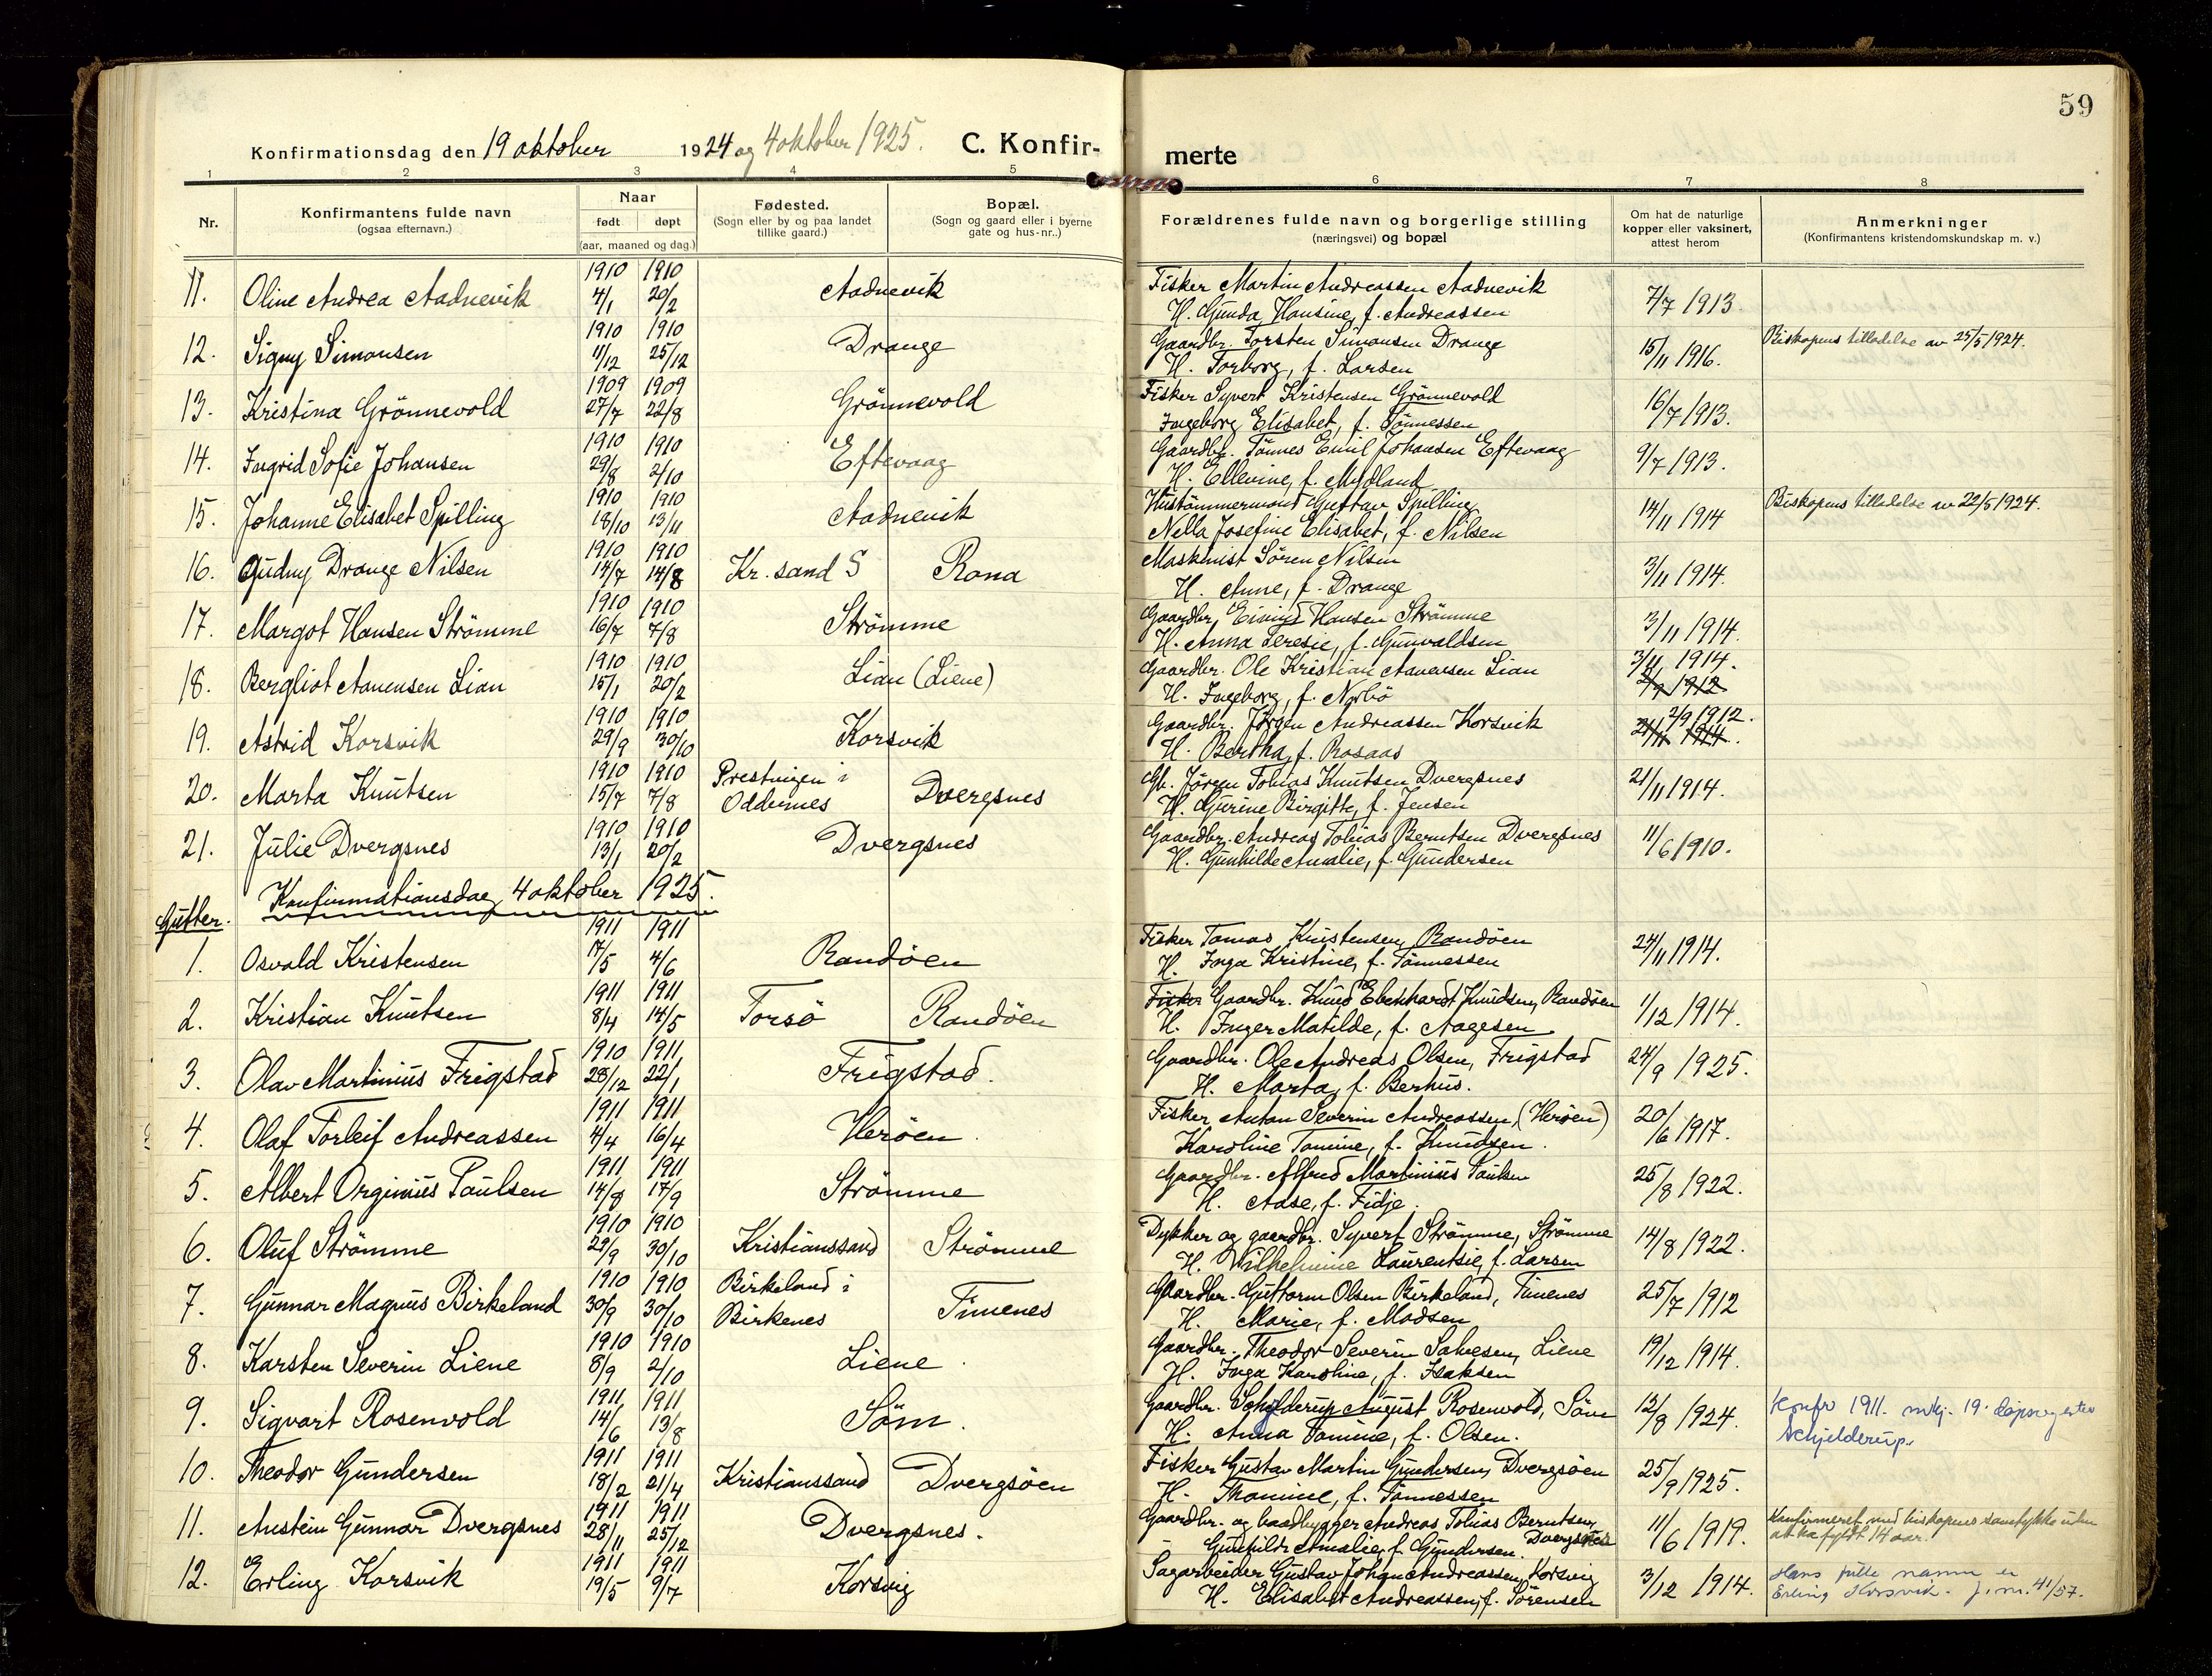 59
Konfirmationsdag den 19 oktober 1924 og 4 oktober 1925. C. Konfir-
merte
1 2 3 4 5 6 7 8
Nr.
Konfirmantens fulde navn
(ogsaa efternavn.)
Naar
født døpt
(aar, maaned og dag.)
Fødested.
(Sogn eller by og paa landet
tillike gaard.)
Bopæl.
(Sogn og gaard eller i byerne
gate og hus-nr..)
Forældrenes fulde navn og borgerlige stilling
(næringsvei) og bopæl
Om hat de naturlige
kopper eller vaksinert,
attest herom
Anmerkninger
(Konfirmantens kristendomskundskap m. v.)
11. Oline Andrea Aadnevik 1910 4/1 1910 20/2 Aadnevik
Fisker Martin Andreassen Aadnevik
H. Gunda Hansine, f. Andreassen
7/7 1913.
12. Signy Simonsen 1910 11/12 1910 25/12 Drange
Gaardbr. Torsten Simonsen Drange
H. Torborg, f. Larsen
15/11 1916.
Biskopens tilladelse av 25/5 1924.
13. Kristina Grönnevold 1909 27/7 1909 22/8 Grönnevold
Fisker Syvert Kristensen Grönnevold
Ingeborg Elisabet, f. Tönnessen
16/7 1913.
14. Ingrid Sofie Johansen 1910 29/8 1910 2/10 Eftevaag
Gaardbr. Tönnes Emil Johansen Eftevaag
H. Ellevine, f. Mydland
9/7 1913.
15. Johanne Elisabet Spilling 1910 18/10 1910 13/11 Aadnevik
Hustömmermand Gustav Spilling
Nella Josefine Elisabet, f. Nilsen
14/11 1914
Biskopens tilladelse av 22/5 1924.
16. Gudny Drange Nilsen 1910 14/7 1910 14/8 Kr. sand S Rona
Maskinist Sören Nilsen
H. Anne, f. Drange
3/11 1914.
17. Margot Hansen Strömme 1910 16/7 1910 7/8 Strömme
Gaardbr. Hansen Strömme
H. Anna Teresie, f. Gunvaldsen
3/11 1914.
18. Bergliot Aanensen Lian 1910 15/1 1910 20/2 Lian (Liene)
Gaardbr. Ole Kristian Aanensen Lian
H. Ingeborg, f. Nybö
3/11 1914.
2/9 1912.
19. Astrid Korsvik 1910 29/9 1910 30/10 Korsvik
Gaardbr. Jörgen Andreassen Korsvik
H. Bertha, f. Rosaas
2/9 1912.
21/11 1914.
20. Marta Knutsen 1910 15/7 1910 7/8 Prestvigen i
Oddernes Dvergsnes
Gb. Jörgen Tobias Knutsen Dvergsnes
H. Gurine Birgitte, f. Jensen
21/11 1914.
21. Julie Dvergsnes 1910 13/1 1910 20/2 Dvergsnes
Gaardbr. Andreas Tobias Berntsen Dvergsnes
H. Gunhilde Amalie, f. Gundersen
11/6 1910.
Konfirmationsdag 4 oktober 1925.
Gutter.
1. Osvald Kristensen 1911 17/5 1911 4/6 Randöen
Fisker Tomas Kristensen, Randöen
H. Inga Kristine, f. Tönnessen
24/11 1914.
2. Kristian Knutsen 1911 8/4 1911 14/5 Torsö Randöen
Fisker Gaardbr. Knud Eberhardt Knudsen, Randöen
H. Inger Matilde, f. Aagesen
1/12 1914.
3. Olav Martinius Frigstad 1910 28/12 1911 22/1 Frigstad.
Gaardbr. Ole Andreas Olsen, Frigstad
H. Marta, f. Berhus.
24/9 1925.
4. Olaf Torleif Andreassen 1911 4/4 1911 16/4 Heröen
Fisker Anton Severin Andreassen, (Heröen)
Karoline Tomine, f. Knudsen.
20/6 1917.
5. Albert Orginius Paulsen 1911 14/8 1911 17/9 Strömme
Gaardbr. Alfred Martinius Paulsen
H. Aase, f. Fidje.
25/8 1922.
6. Oluf Strömme 1910 29/9 1910 30/10 Kristianssand Strömme
Dykker og gaardbr. Syvert Strömme, Strömme
H. Wilhelmine Laurentsie, f. Larsen
14/8 1922.
7. Gunnar Magnus Birkeland 1910 30/9 1910 30/10 Birkeland i
Birkenes Timenes
Gaardbr. Guttorm Olsen Birkeland, Timenes
H. Marie, f. Madsen
25/7 1912
8. Karsten Severin Liene 1910 8/9 1910 2/10 Liene
Gaardbr. Theodor Severin Salvesen, Liene
H. Inga Karoline, f. Isaksen
19/12 1914.
9. Sigvart Rosenvold 1911 14/6 1911 13/8 Söm.
Gaardbr. Schjelderup August Rosenvold, Söm
H. Anna Tomine, f. Olsen.
12/8 1924.
Konfr 1911. 19.
Schjelderup.
10. Theodor Gundersen 1911 18/2 1911 21/4 Kristianssand Dvergsöen
Fisker Gustav Martin Gundersen, Dvergsöen
H. Thomine, f. Tönnessen
25/9 1925.
11. Anstein Gunnar Dvergsnes 1911 28/11 1911 25/12 Dvergsnes.
Gaardbr. og baadbygger Andreas Tobias Berntsen,
Gunhilde Amalie, f. Gundersen. Dvergsnes
11/6 1919.
Konfirmeret med biskopens samtykke uten
at ha fyldt 14 aar.
12. Erling Korsvik 1911 19/5 1911 9/7 Korsvig
Sagarbeider Gustav Johan Andreassen, Korsvig
H. Elisabet Andreassen, f. Sörensen
3/12 1914.
Hans fulle namn er
Erling Korsvik. j. nr. 41/57.